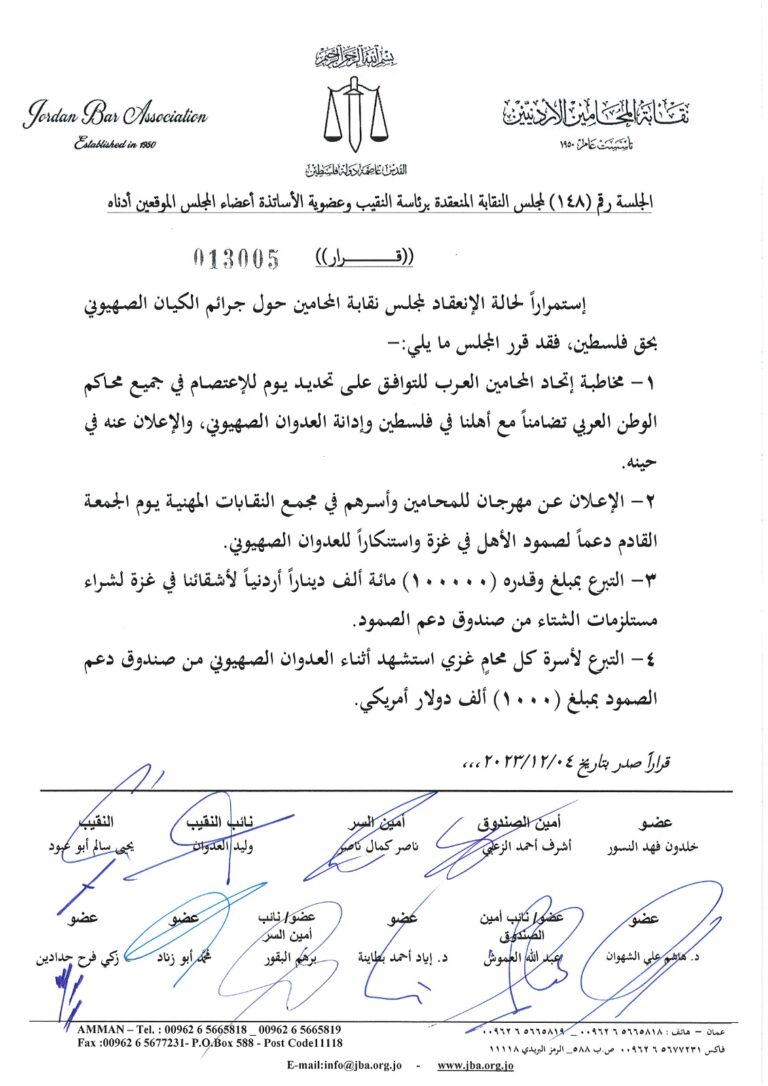 بسم الله الرحمن الرحيم
Jordan Bar Association
Established in 1950
نقابة المحامين الأردنيين
تأسست عام ١٩٥٠
القدس عاصمة دولة فلسطين
الجلسة رقم (١٤٨) لمجلس النقابة المنعقدة برئاسة النقيب وعضوية الأساتذة أعضاء المجلس الموقعين أدناه
((قـــــــرار)) 013005
إستمراراً لحالة الإنعقاد لمجلس نقابة المحامين حول جرائم الكيان الصهيوني
بحق فلسطين، فقد قرر المجلس ما يلي:-
١- مخاطبة إتحاد المحامين العرب للتوافق على تحديد يوم للإعتصام في جميع محاكم
الوطن العربي تضامناً مع أهلنا في فلسطين وإدانة العدوان الصهيوني، والإعلان عنه في
حينه.
٢- الإعلان عن مهرجان للمحامين وأسرهم في مجمع النقابات المهنية يوم الجمعة
القادم دعماً لصمود الأهل في غزة واستنكاراً للعدوان الصهيوني.
٣- التبرع بمبلغ وقدره (١٠٠٠٠٠) مائة ألف ديناراً أردنياً لأشقائنا في غزة لشراء
مستلزمات الشتاء من صندوق دعم الصمود.
٤- التبرع لأسرة كل محامٍ غزي استشهد أثناء العدوان الصهيوني من صندوق دعم
الصمود بمبلغ (١٠٠٠) ألف دولار أمريكي.
قراراً صدر بتاريخ ٢٠٢٣/١٢/٠٤،،،
عضو أمين الصندوق أمين السر نائب النقيب النقيب
خلدون فهد النسور أشرف أحمد الزعبي ناصر كمال ناصر وليد العدوان يحيى سالم أبو عبود
عضو عضو/ نائب أمين عضو عضو/ نائب عضو عضو
الصندوق أمين السر
د. هاشم علي الشهوان عبد الله العموش د. إياد أحمد بطاينة برهم البقور محمد أبو زناد زكي فرح حدادين
AMMAN – Tel. : 00962 6 5665818 _ 00962 6 5665819
Fax :00962 6 5677231- P.O.Box 588 - Post Code11118
عمان – هاتف : ٥٦٦٥٨١٨ ٦ ٠٠٩٦٢ _ ٥٦٦٥٨١٩ ٦ ٠٠٩٦٢
فاكس ٥٦٧٧٢٣١ ٦ ٠٠٩٦٢ ص.ب ٥٨٨_ الرمز البريدي ١١١١٨
E-mail:info@jba.org.jo - www.jba.org.jo